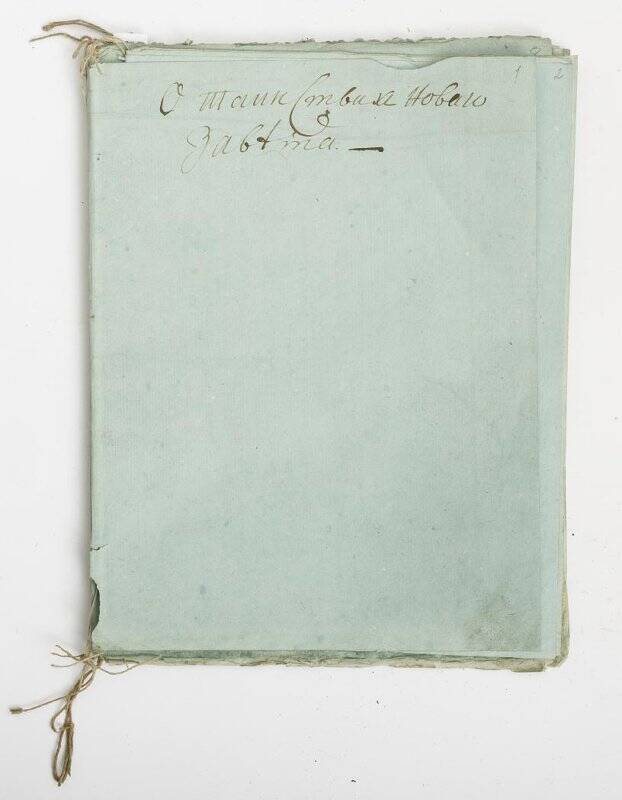 1 2
О таинствахъ Новаго
Завѣта. —